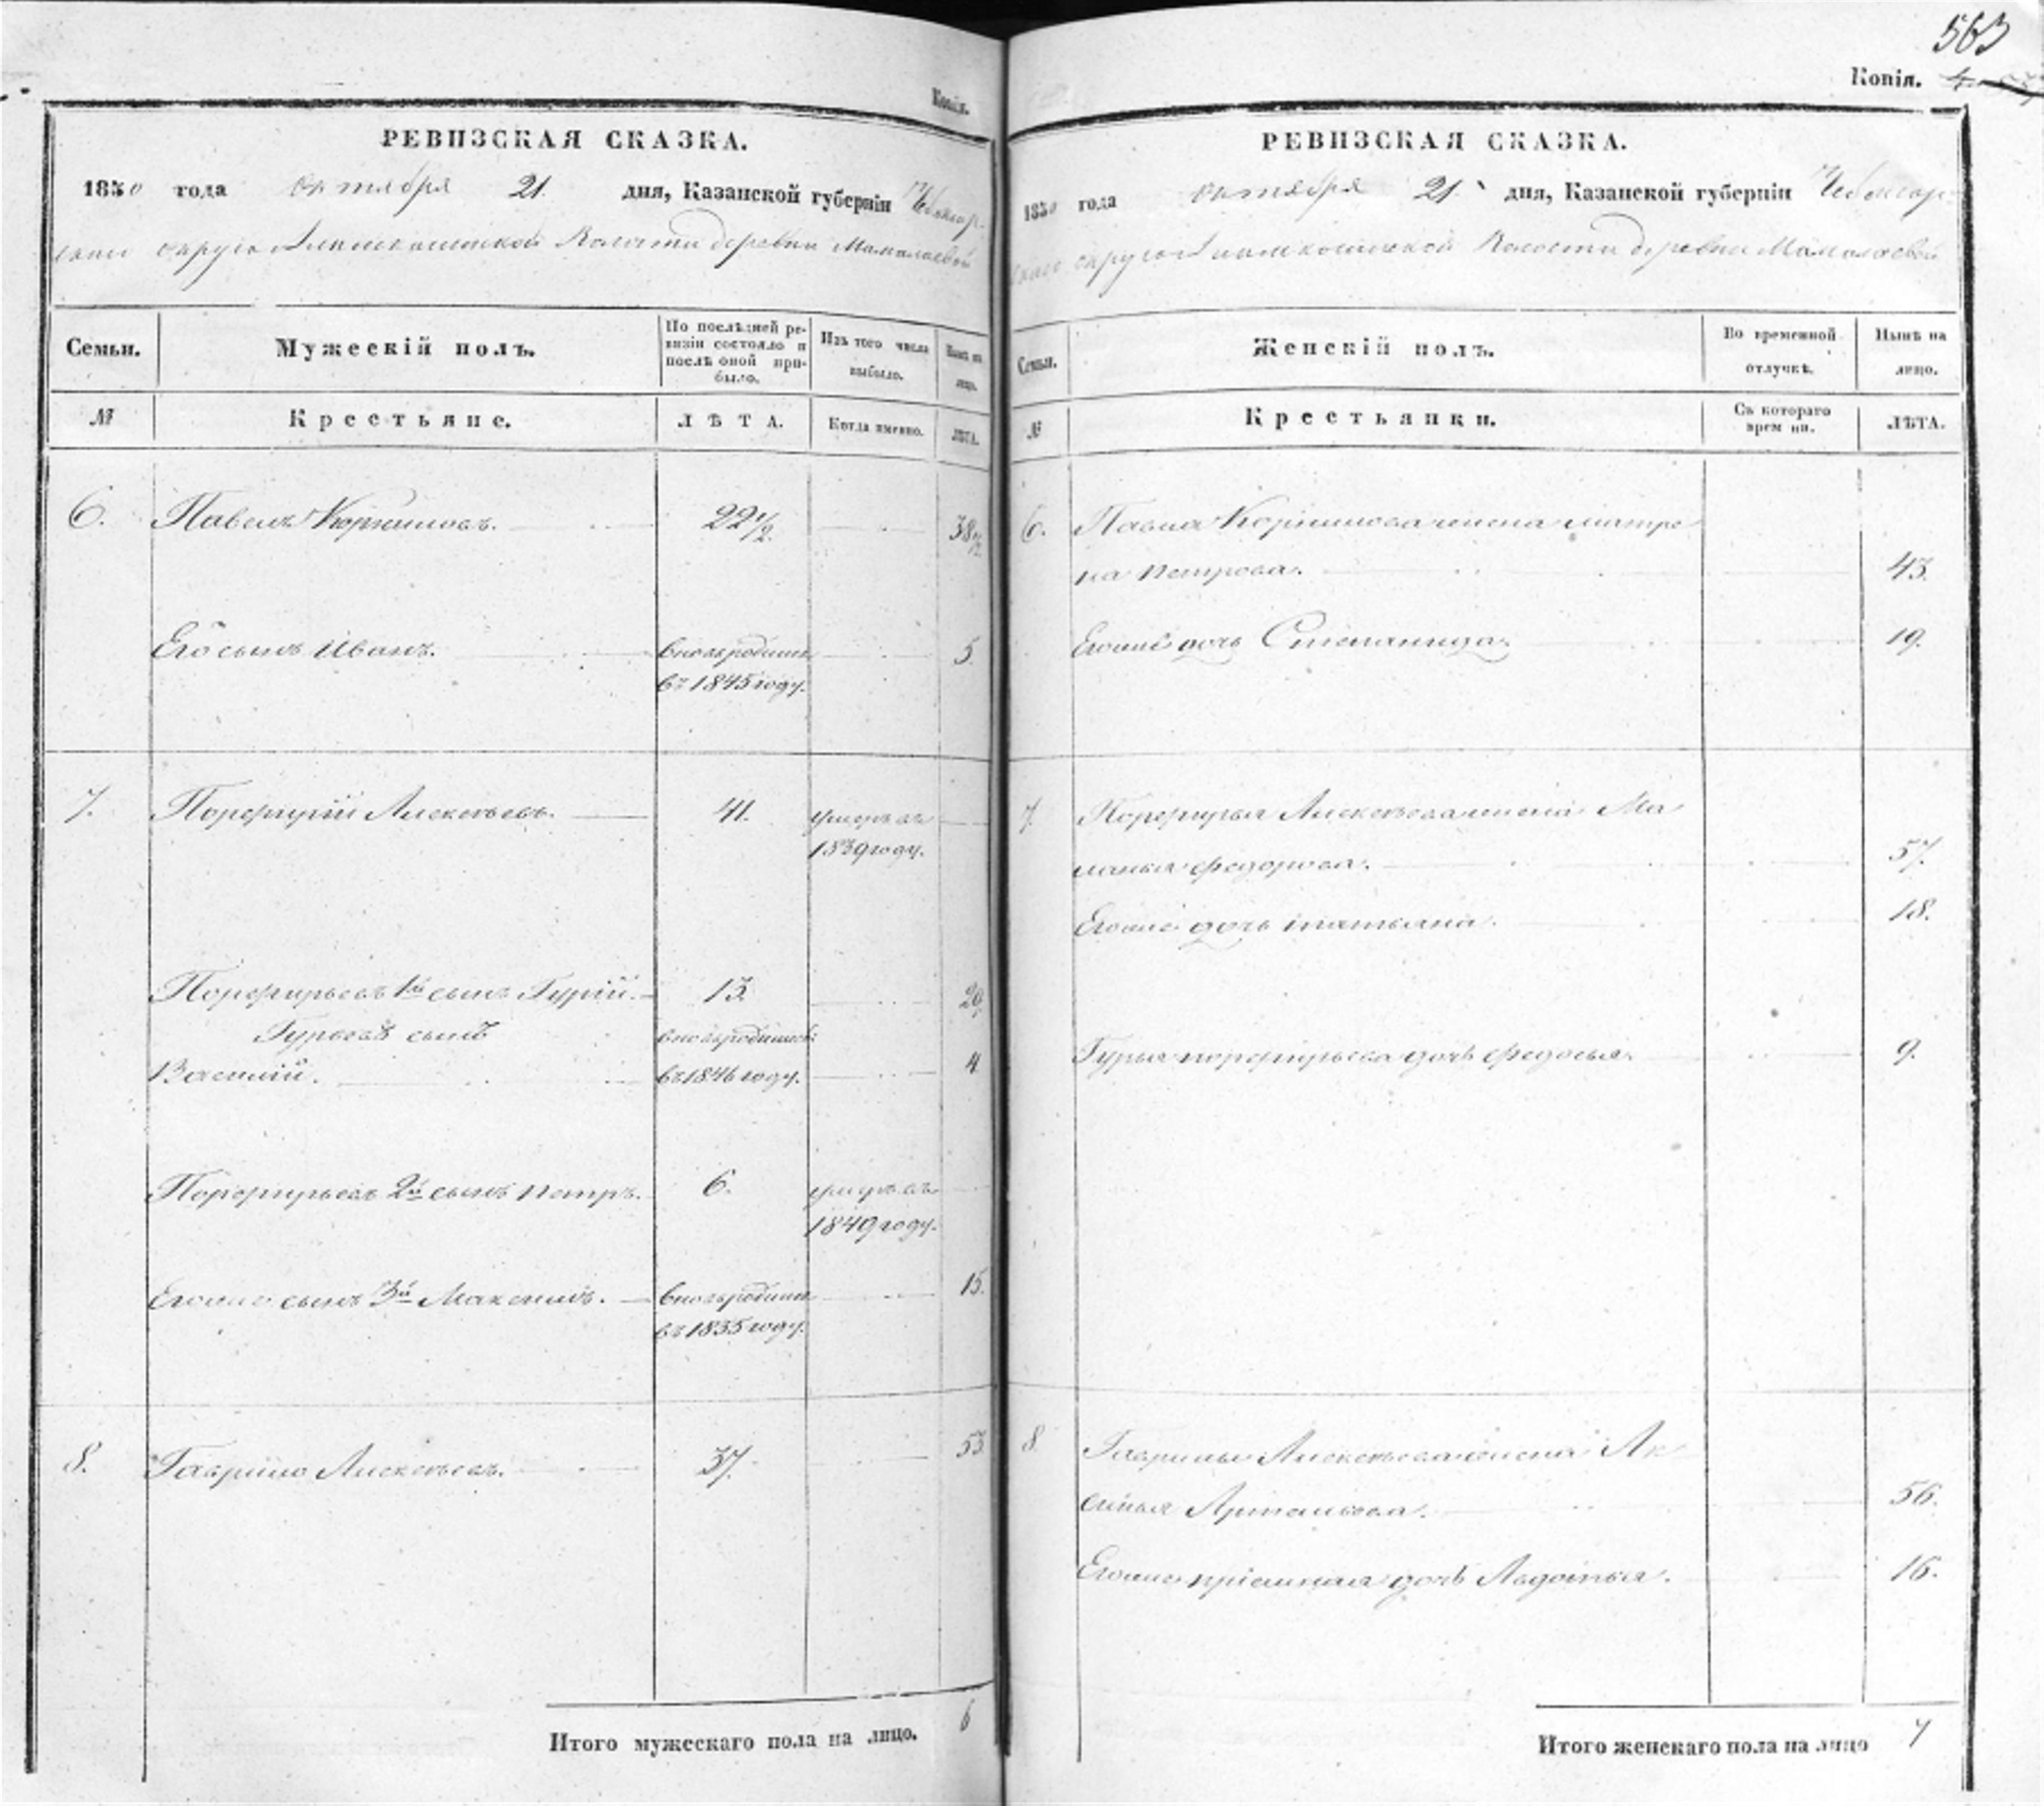 Копія.
РЕВИЗСКАЯ СКАЗКА.
1850 года октября 21. дня, Казанской губерніи Чебоксар
скаго округа волости деревни Мамалаевой
Семьи.
Мужескій полъ.
По послѣдней ре-
визіи состояло и
послѣ оной при-
было.
Изъ того числа
выбыло.
Нынѣ на
лицо.
№
Крестьяне.
ЛѢТА.
Когда именно.
ЛѢТА.
6. Павелъ Корниловъ. 22 1/2. 38 1/2
Его сынъ Иванъ. вновьродился 5.
въ 1845 году.
7. Порфирій Алексѣевъ. 41. умеръ въ
1839 году.
Порфирьевъ 1й сынъ Гурій. 13. 29.
Гурьевъ сынъ вновьродился
Василий. въ 1846 году. 4
Порфирьевъ 2й сынъ петръ. 6. умеръ въ
1849 году.
Егоже сынъ 3й Максимъ. вновьродился 15.
въ 1835 году.
8. Гаврило Алексѣевъ. 37. 53
Итого мужескаго пола на лицо. 6
563
Копія.
РЕВИЗСКАЯ СКАЗКА.
1850 года октября 21 дня, Казанской губерніи Чебоксар
скаго округа волости деревни Мамалаевой
Семьи.
Женскій полъ.
Во временной
отлучкѣ.
Нынѣ на
лицо.
№
Крестьянки.
Съ котораго
врем ни.
ЛѢТА.
6. Павла Корнилова жена матре
на петрова. 43.
Егоже дочь Степанида. 19.
7. Порфирья Алексѣева жена Ма
ланья федорова. 57.
Егоже дочь татьяна. 18.
Гурья порфирьева дочь федосья. 9.
8. Гаврилы Алексѣева жена Ак
синья 56.
Егоже приемная дочь Авдотья. 16.
Итого женскаго пола на лицо 7